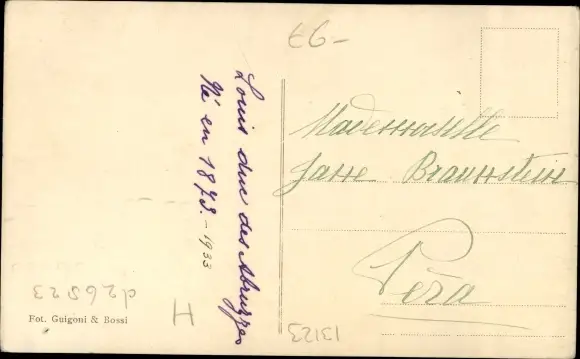 26-
Louis duc des Abruzzes
Né en 1873. - 1933
Mademoiselle
Jane Braunstein
Péra
d26523
H
13123
Fot. Guigoni & Bossi